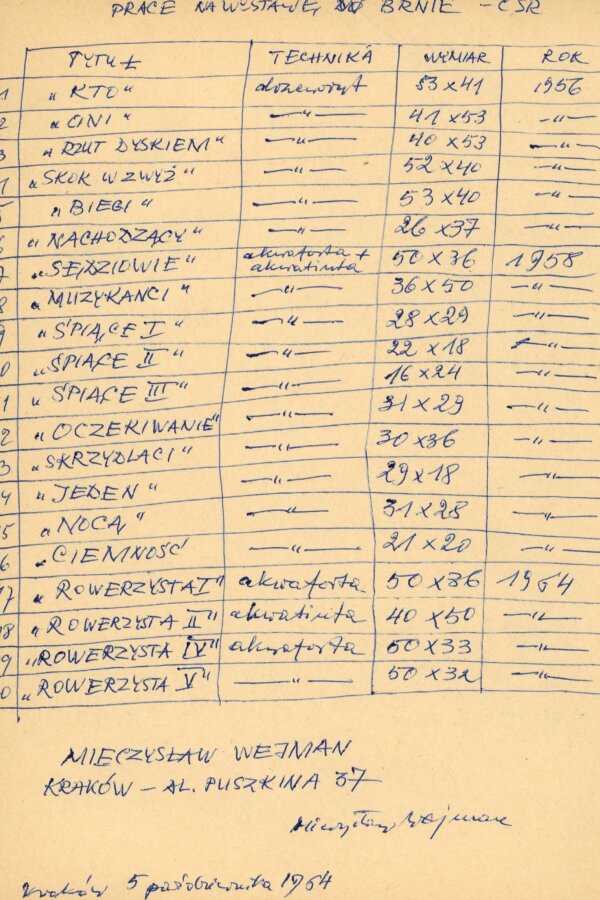 PRACE NA WYSTAWĘ W BRNIE - ČSR
TYTUŁ TECHNIKA WYMIAR ROK
1 „KTO" drzeworyt 53 x 41 1956
2 „ONI" —"— 41 x 53 —"—
3 „RZUT DYSKIEM" —"— 40 x 53 —"—
4 „SKOK WZWYŻ" —"— 52 x 40 —"—
5 „BIEGI" —"— 53 x 40 —"—
6 „NACHODZĄCY" —"— 26 x 37 —"—
7 „SĘDZIOWIE" akwaforta + akwatinta 50 x 36 1958
8 „MUZYKANCI" —"— 36 x 50 —"—
9 „ŚPIĄCE I" —"— 28 x 29 —"—
0 „ŚPIĄCE II" —"— 22 x 18 —"—
1 „ŚPIĄCE III" —"— 16 x 24 —"—
2 „OCZEKIWANIE" —"— 31 x 29 —"—
3 „SKRZYDLACI" —"— 30 x 36 —"—
4 „JEDEN" —"— 29 x 18 —"—
5 „NOCĄ" —"— 31 x 28 —"—
6 „CIEMNOŚĆ —"— 21 x 20 —"—
17 „ROWERZYSTA I" akwaforta 50 x 36 1964
18 „ROWERZYSTA II" akwatinta 40 x 50 —"—
9 „ROWERZYSTA IV" akwaforta 50 x 33 —"—
0 „ROWERZYSTA V" —"— 50 x 32 —"—
MIECZYSŁAW WEJMAN
KRAKÓW - AL. PUSZKINA 37
Mieczysław Wejman
Kraków 5 października 1964